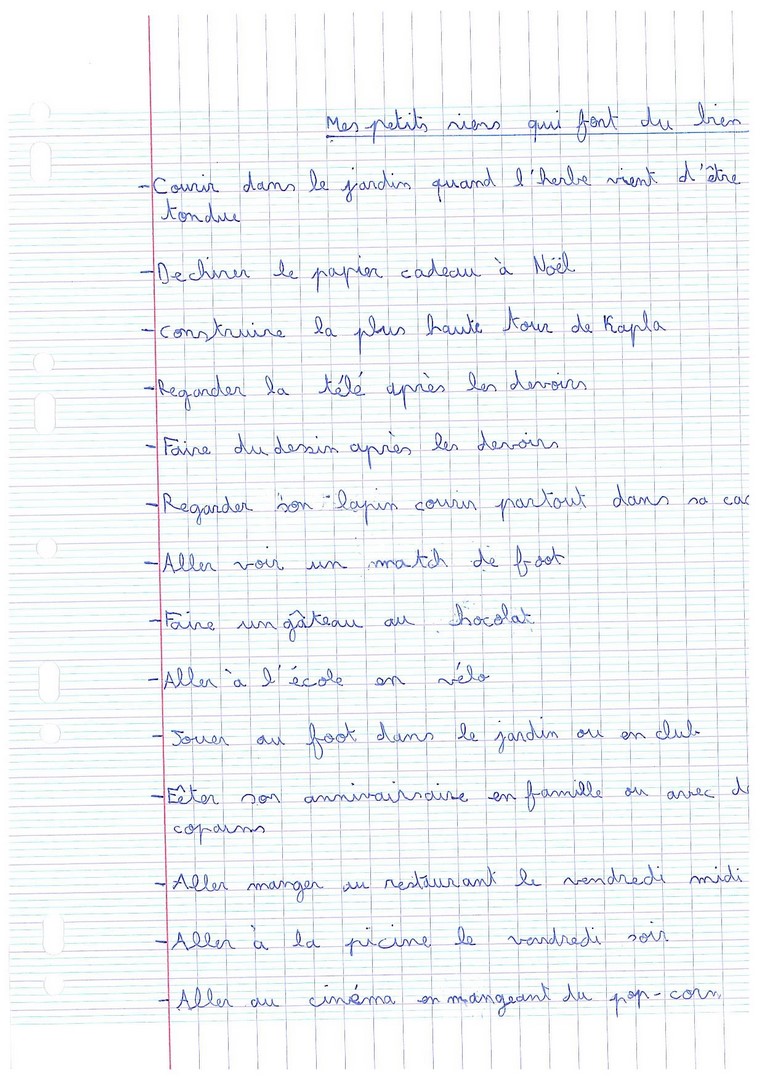 Mes petits riens qui font du bien
-Courir dans le jardin quand l'herbe vient d'être
tondue
-Dechirer le papier cadeau à Noël
-construire la plus haute tour de Kapla
-Regarder la télé après les devoirs
-Faire du dessin après les devoirs
-Regarder son lapin courir partout dans sa cac
-Aller voir un match de foot
-Faire un gâteau au chocolat
-Aller à l'école en vélo
-Jouer au foot dans le jardin ou en club
-Fêter son annivairsaire en famille ou avec de
copains
-Aller manger au restaurant le vendredi midi
-Aller à la picine le vandredi soir
-Aller au cinéma en mangeant du pop-corn